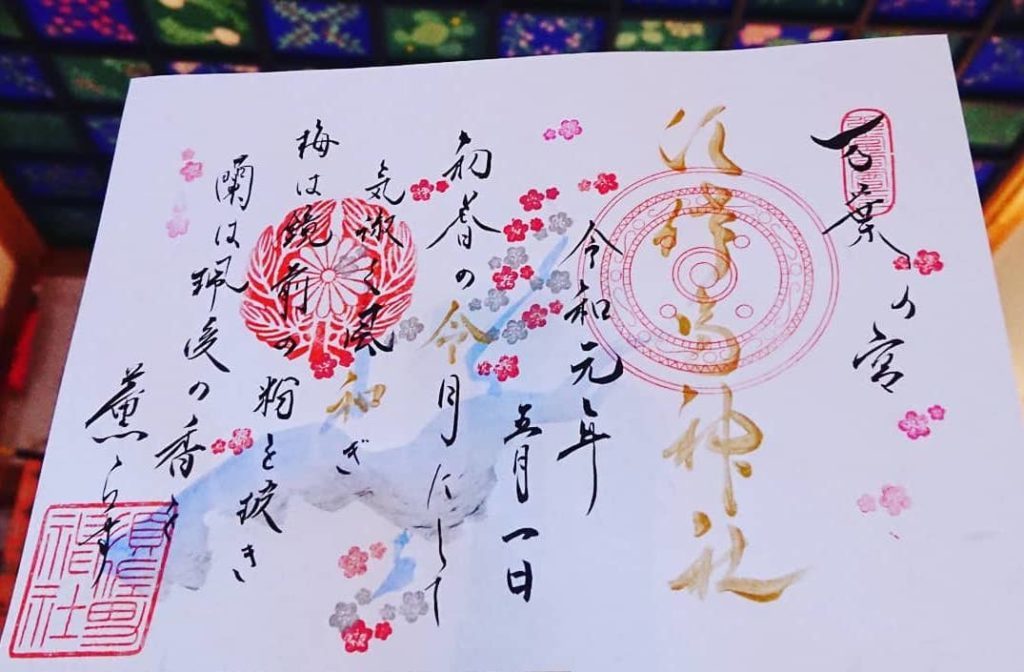 万葉の宮
令和元年
五月一日
初春の令月にして
気淑く風和ぎ
梅は鏡前の粉を披き
蘭は珮後の香を
薫らす